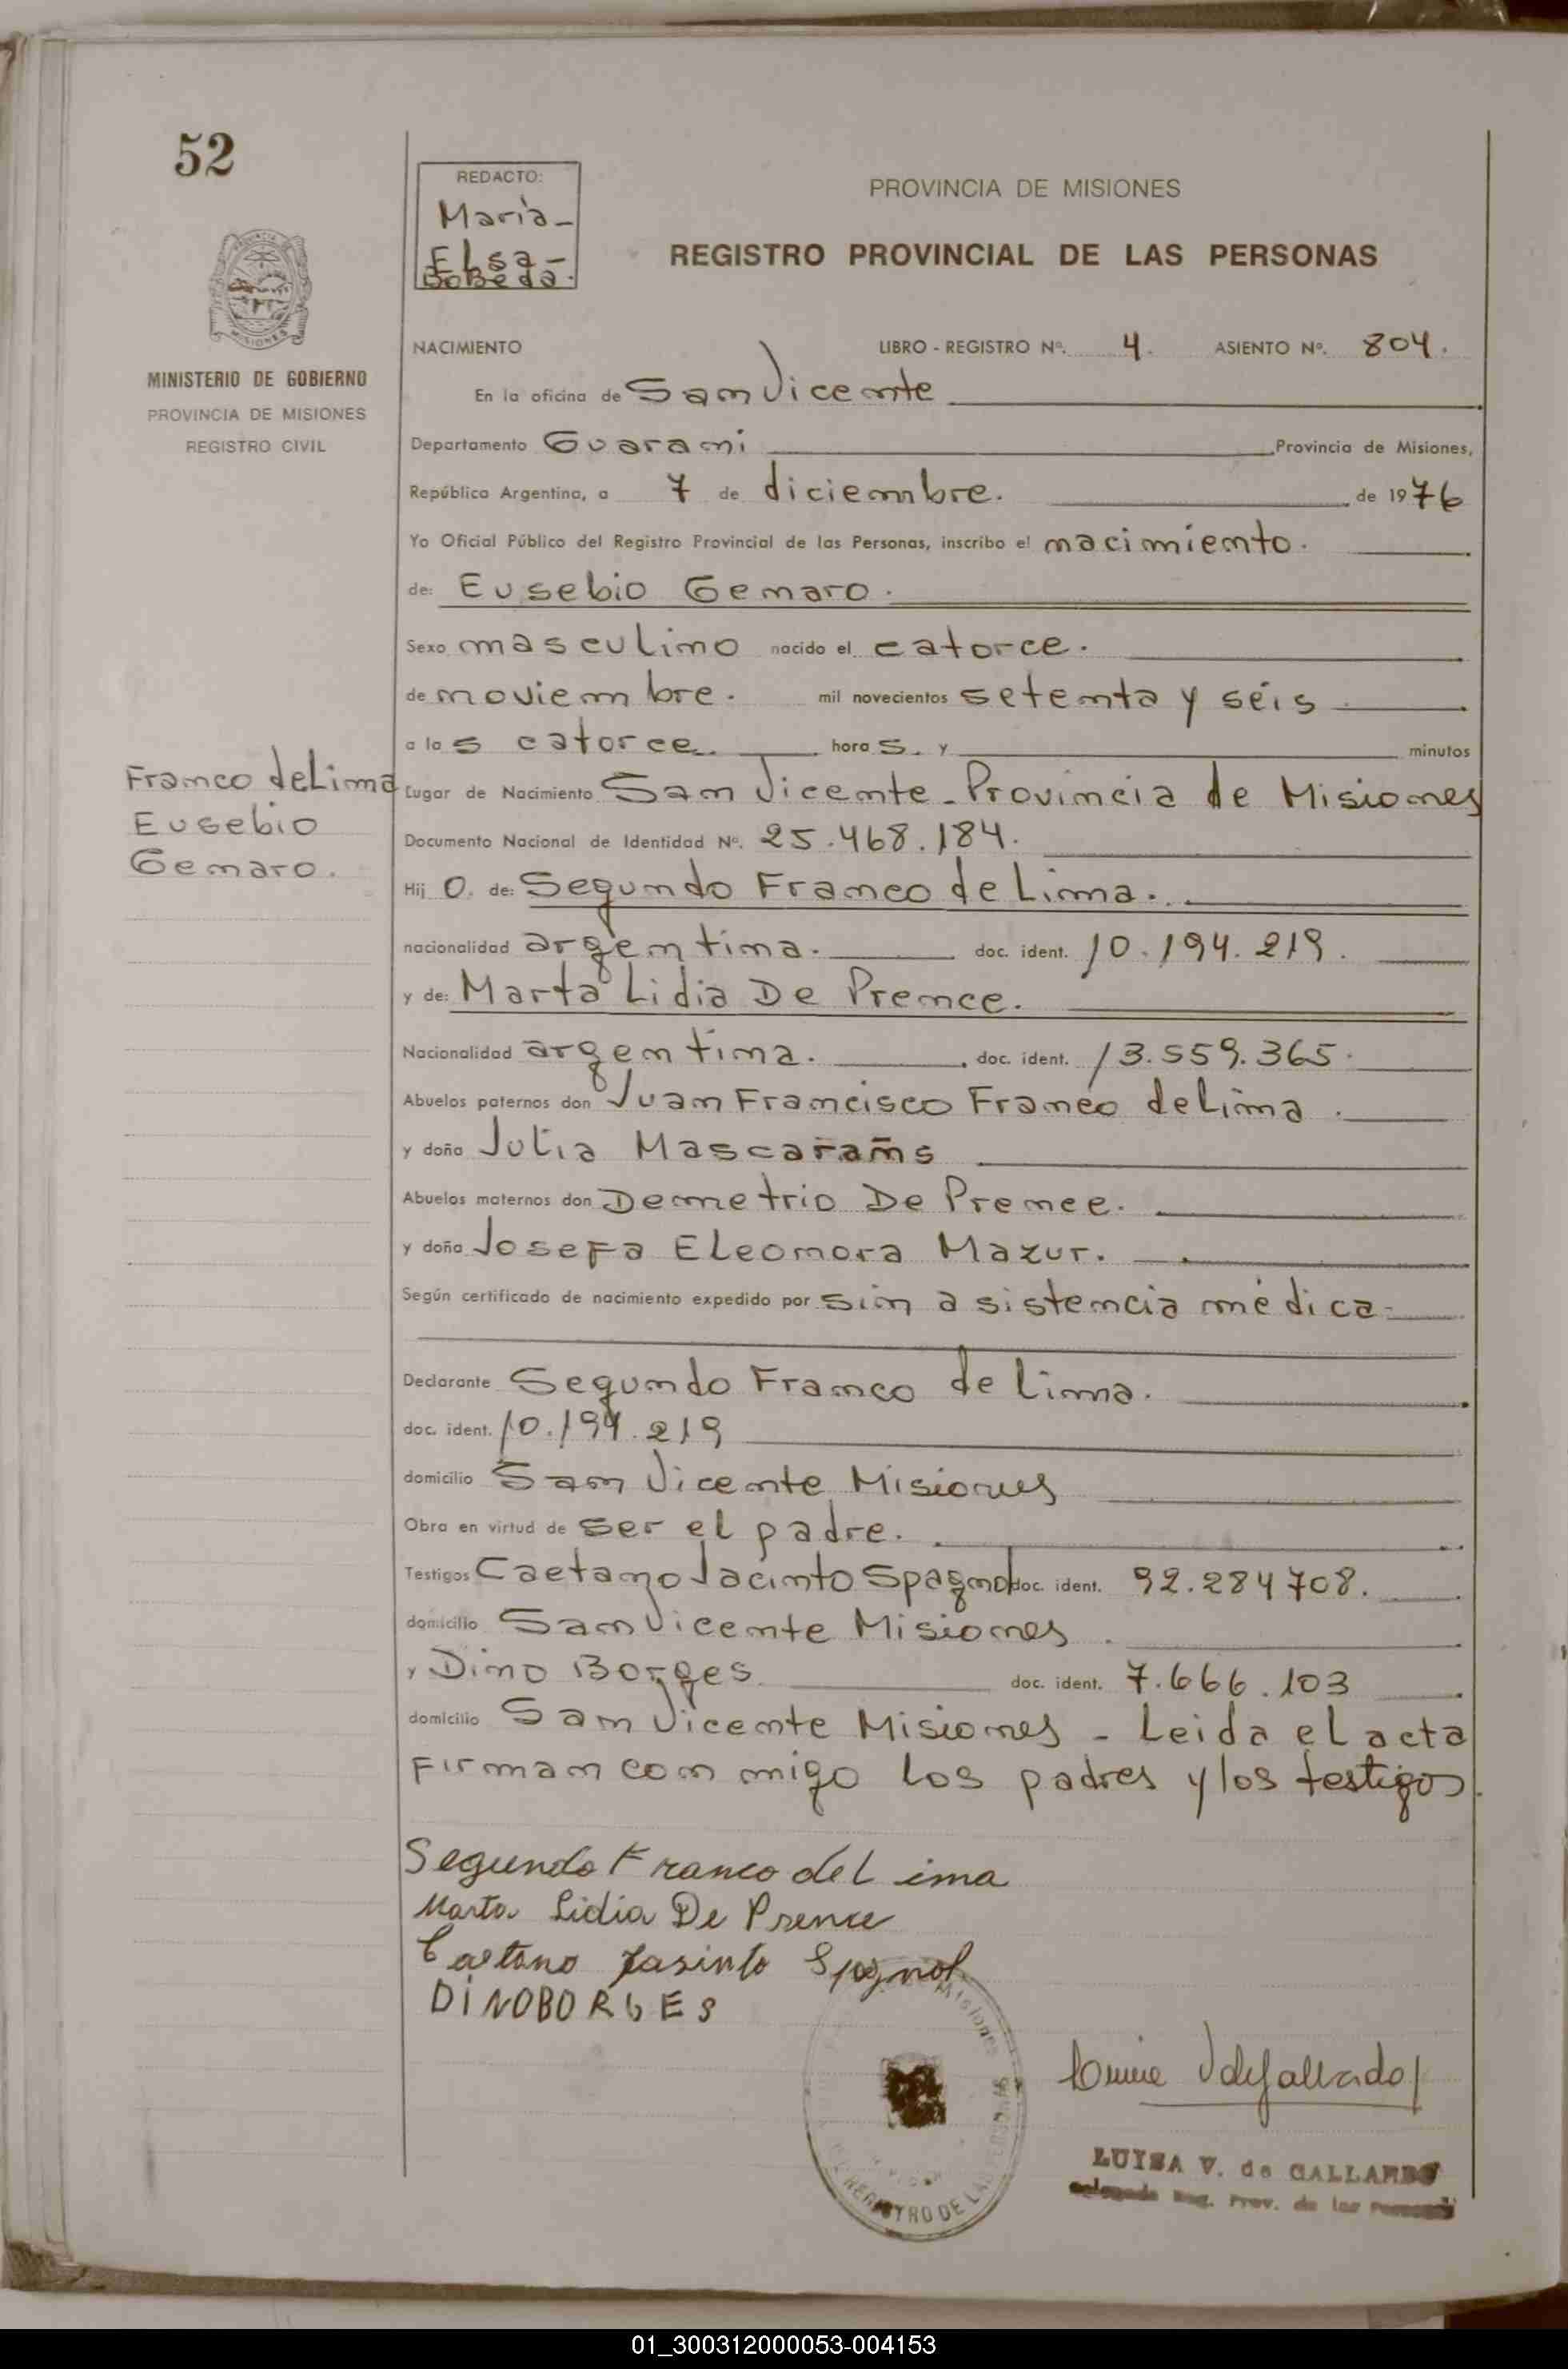 52
REDACTO:
María-
Elsa-
BoBeda.
PROVINCIA DE MISIONES
REGISTRO PROVINCIAL DE LAS PERSONAS
MISIONES
MINISTERIO DE GOBIERNO
PROVINCIA DE MISIONES
REGISTRO CIVIL
NACIMIENTO LIBRO - REGISTRO Nº. 4. ASIENTO Nº. 804.
En la oficina de San Vicente
Departamento Guarani Provincia de Misiones,
República Argentina, a 7 de diciembre. de 1976
Yo Oficial Público del Registro Provincial de las Personas, inscribo el nacimiento.
de: Eusebio Genaro.
Sexo masculino nacido el catorce.
de noviembre. mil novecientos setenta y séis
a las catorce. horas. y minutos
Franco deLima
Eusebio
Genaro.
Lugar de Nacimiento San Vicente - Provincia de Misiones
Documento Nacional de Identidad Nº. 25.468.184.
Hijo. de: Segundo Franco de Lima.
nacionalidad argentina. doc. ident. 10.194.219.
y de: Marta Lidia De Prence.
Nacionalidad argentina. doc. ident. 13.559.365.
Abuelos paternos don Juan Francisco Franco deLima.
y doña Julia Mascarañs
Abuelos maternos don Demetrio De Prence.
y doña Josefa Eleonora Mazur.
Según certificado de nacimiento expedido por sin asistencia médica-
Declarante Segundo Franco de Lima.
doc. ident. 10.194.219
domicilio San Vicente Misiones
Obra en virtud de ser el padre.
Testigos Caetano Jacinto Spagnol doc. ident. 92.284708.
domicilio San Vicente Misiones.
y Dino Borges doc. ident. 7.666.103
domicilio San Vicente Misiones - Leida el acta
Firman con migo los padres y los testigos.
Segundo Franco deLima
Marta Lidia De Prence
Caetano Jasinto Spagnol
DINOBORGES
Misiones
REGISTRO DE LAS PERSONAS
LUISA V. de GALLARDO
Delegada Reg. Prov. de las Personas
01_300312000053-004153